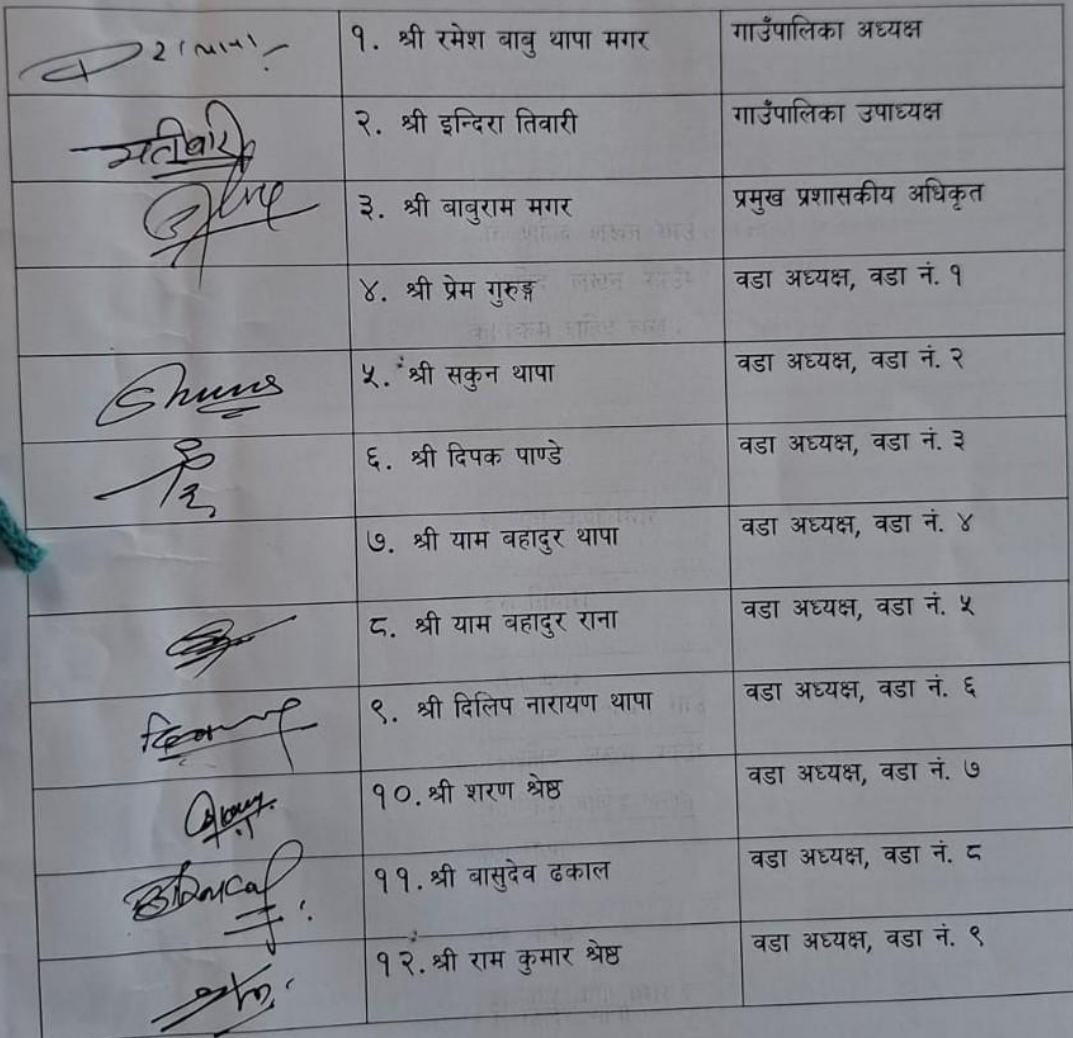 १. श्री रमेश बाबु थापा मगर गाउँपालिका अध्यक्ष
२. श्री इन्दिरा तिवारी गाउँपालिका उपाध्यक्ष
३. श्री बाबुराम मगर प्रमुख प्रशासकीय अधिकृत
४. श्री प्रेम गुरुङ्ग वडा अध्यक्ष, वडा नं. १
५. श्री सकुन थापा वडा अध्यक्ष, वडा नं. २
६. श्री दिपक पाण्डे वडा अध्यक्ष, वडा नं. ३
७. श्री याम बहादुर थापा वडा अध्यक्ष, वडा नं. ४
८. श्री याम बहादुर राना वडा अध्यक्ष, वडा नं. ५
९. श्री दिलिप नारायण थापा वडा अध्यक्ष, वडा नं. ६
१०. श्री शरण श्रेष्ठ वडा अध्यक्ष, वडा नं. ७
११. श्री बासुदेव ढकाल वडा अध्यक्ष, वडा नं. ८
१२. श्री राम कुमार श्रेष्ठ वडा अध्यक्ष, वडा नं. ९